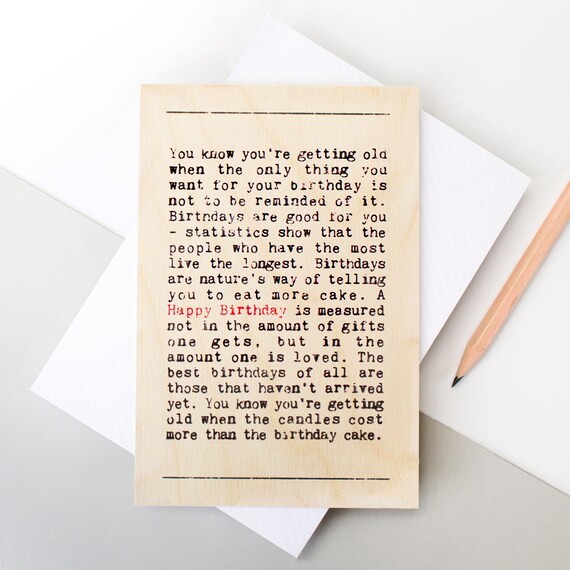 You know you're getting old
when the only thing you
want for your birthday is
not to be reminded of it.
Birthdays are good for you
- statistics show that the
people who have the most
live the longest. Birthdays
are nature's way of telling
you to eat more cake. A
Happy Birthday is measured
not in the amount of gifts
one gets, but in the
amount one is loved. The
best birthdays of all are
those that haven't arrived
yet. You know you're getting
old when the candles cost
more than the birthday cake.